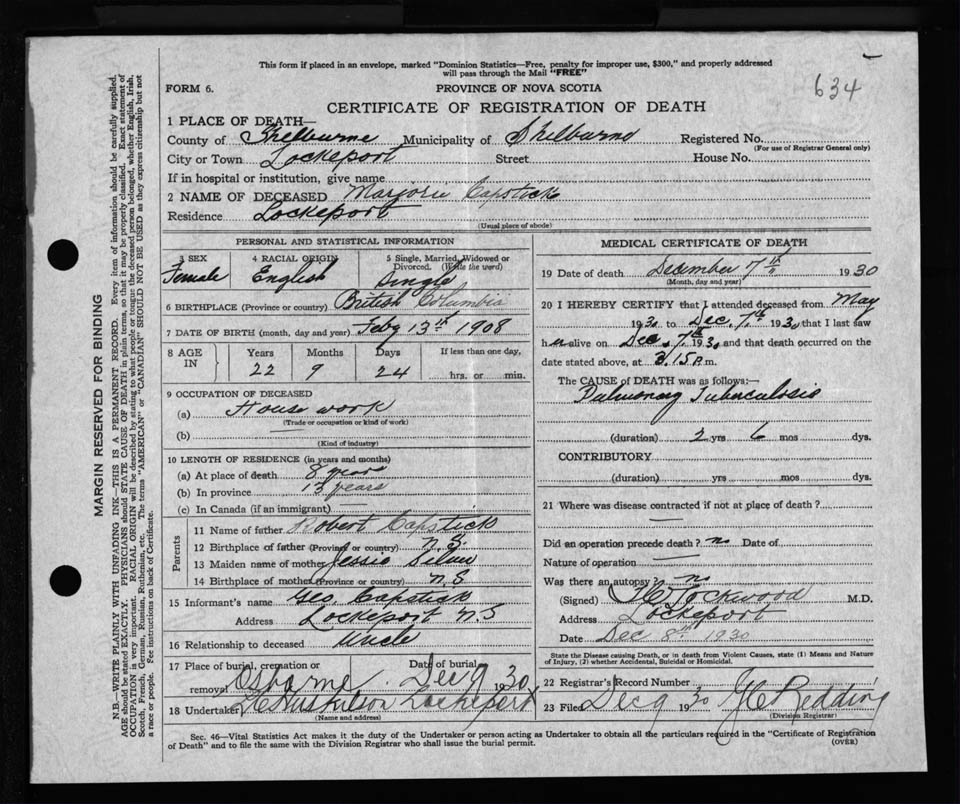 This form if placed in an envelope, marked "Dominion Statistics—Free, penalty for improper use, $300," and properly addressed
will pass through the Mail "FREE"
634
FORM 6.
PROVINCE OF NOVA SCOTIA
CERTIFICATE OF REGISTRATION OF DEATH
1 PLACE OF DEATH—
County of Shelburne Municipality of Shelburne Registered No.
(For use of Registrar General only)
City or Town Lockeport Street House No.
If in hospital or institution, give name
2 NAME OF DECEASED Marjorie Capstick
Residence Lockeport
(Usual place of abode)
PERSONAL AND STATISTICAL INFORMATION
3 SEX 4 RACIAL ORIGIN 5 Single, Married, Widowed or
Divorced. (Write the word)
Female English Single
6 BIRTHPLACE (Province or country) British Columbia
7 DATE OF BIRTH (month, day and year) Feby 13th 1908
8 AGE IN Years Months Days If less than one day,
22 9 24 hrs. or min.
9 OCCUPATION OF DECEASED
(a) House work
(Trade or occupation or kind of work)
(b)
(Kind of industry)
10 LENGTH OF RESIDENCE (in years and months)
(a) At place of death 8 years
(b) In province 13 years
(c) In Canada (if an immigrant) —
Parents
11 Name of father Robert Capstick
12 Birthplace of father (Province or country) N.S.
13 Maiden name of mother Jessie
14 Birthplace of mother (Province or country) N.S
15 Informant's name Geo Capstick
Address Lockeport N.S
16 Relationship to deceased Uncle
17 Place of burial, cremation or Date of burial
removal Osborne. Dec 9 1930
18 Undertaker Lockeport
(Name and address)
MEDICAL CERTIFICATE OF DEATH
19 Date of death December 7th 1930
(Month, day and year)
20 I HEREBY CERTIFY that I attended deceased from May
1930 to Dec. 7th 1930 that I last saw
her alive on Dec. 7th 1930 and that death occurred on the
date stated above, at 3.15 P.m.
The CAUSE OF DEATH was as follows:—
Pulmonary Tuberculosis
(duration) 2 yrs 6 mos dys.
CONTRIBUTORY
(duration) yrs mos dys.
21 Where was disease contracted if not at place of death?
—
Did an operation precede death? no Date of
Nature of operation —
Was there an autopsy? no
(Signed) Lockwood M.D.
Address Lockeport
Date Dec 8th 1930
State the Disease causing Death, or in death from Violent Causes, state (1) Means and
Nature of Injury, (2) whether Accidental, Suicidal or Homicidal.
22 Registrar's Record Number
23 Filed Dec 9 1930 Redding
(Division Registrar)
Sec. 46—Vital Statistics Act makes it the duty of the Undertaker or person acting as Undertaker to obtain all the particulars required in the "Certificate of Registration
of Death" and to file the same with the Division Registrar who shall issue the burial permit.
(OVER)
MARGIN RESERVED FOR BINDING
N.B.—WRITE PLAINLY WITH UNFADING INK—THIS IS A PERMANENT RECORD. Every item of information should be carefully supplied.
AGE should be stated EXACTLY. PHYSICIANS should STATE CAUSE OF DEATH in plain terms, so that it may be properly classified. Exact statement of
OCCUPATION is very important. RACIAL ORIGIN will be described by stating to what people or tongue the deceased person belonged, whether English, Irish,
Scotch, French, German, Russian, Ruthenian, etc. The terms "AMERICAN" or "CANADIAN" SHOULD NOT BE USED as they express citizenship but not
a race or people. Fee instructions on back of Certificate.